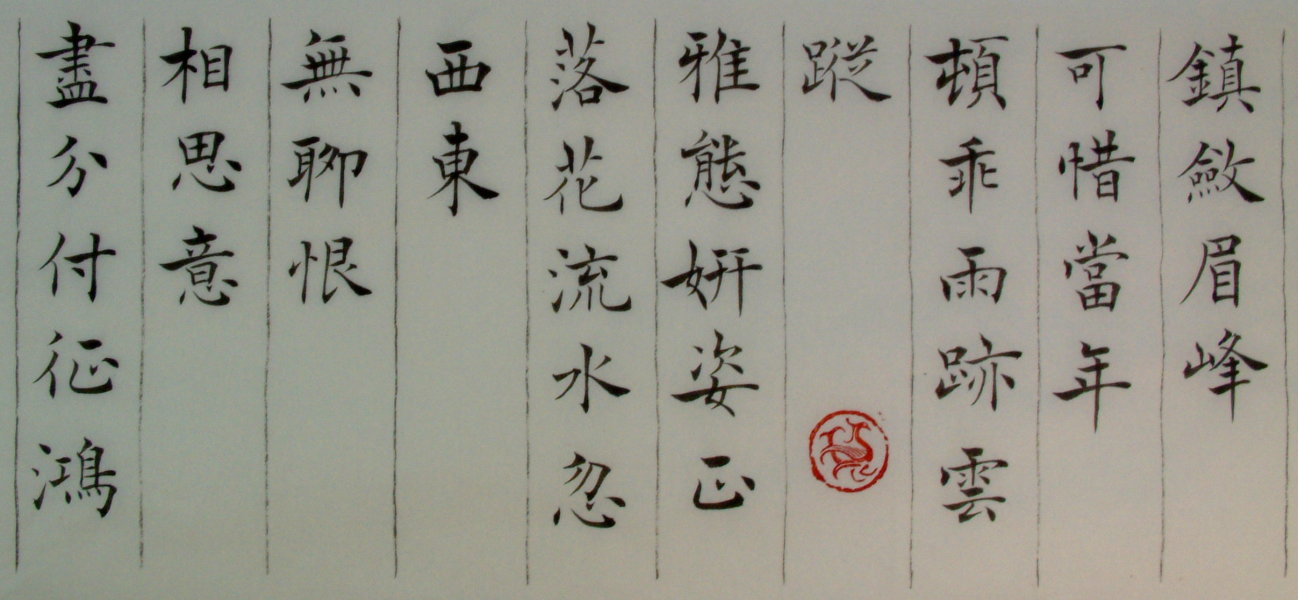 鎮斂眉峰
可惜當年
頓乖雨跡雲
蹤
雅態妍姿正
落花流水忽
西東
無聊恨
相思意
盡分付征鴻